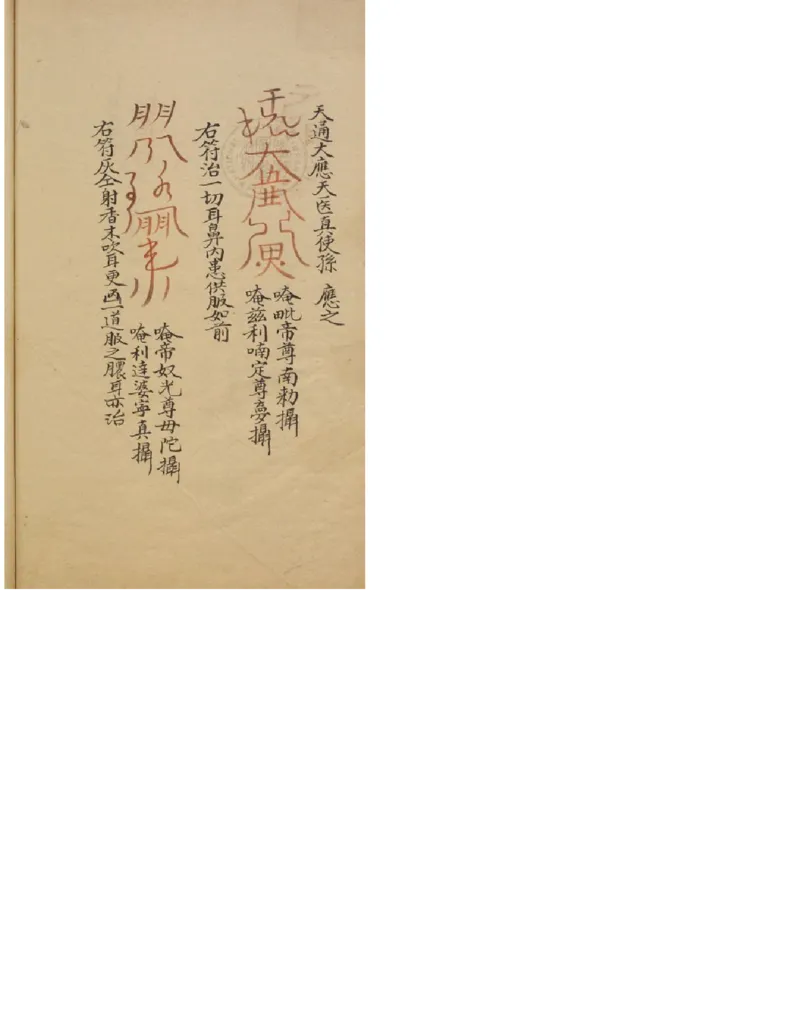 天通大應天医真使孫 應之
唵毗帝尊南勑攝
唵兹利喃定尊㝱攝
右符治一切耳鼻内患供服如前
唵帝奴光尊毋陀攝
唵利達婆寧真攝
右符灰仝射香末吹耳更画一道服之膿耳亦治